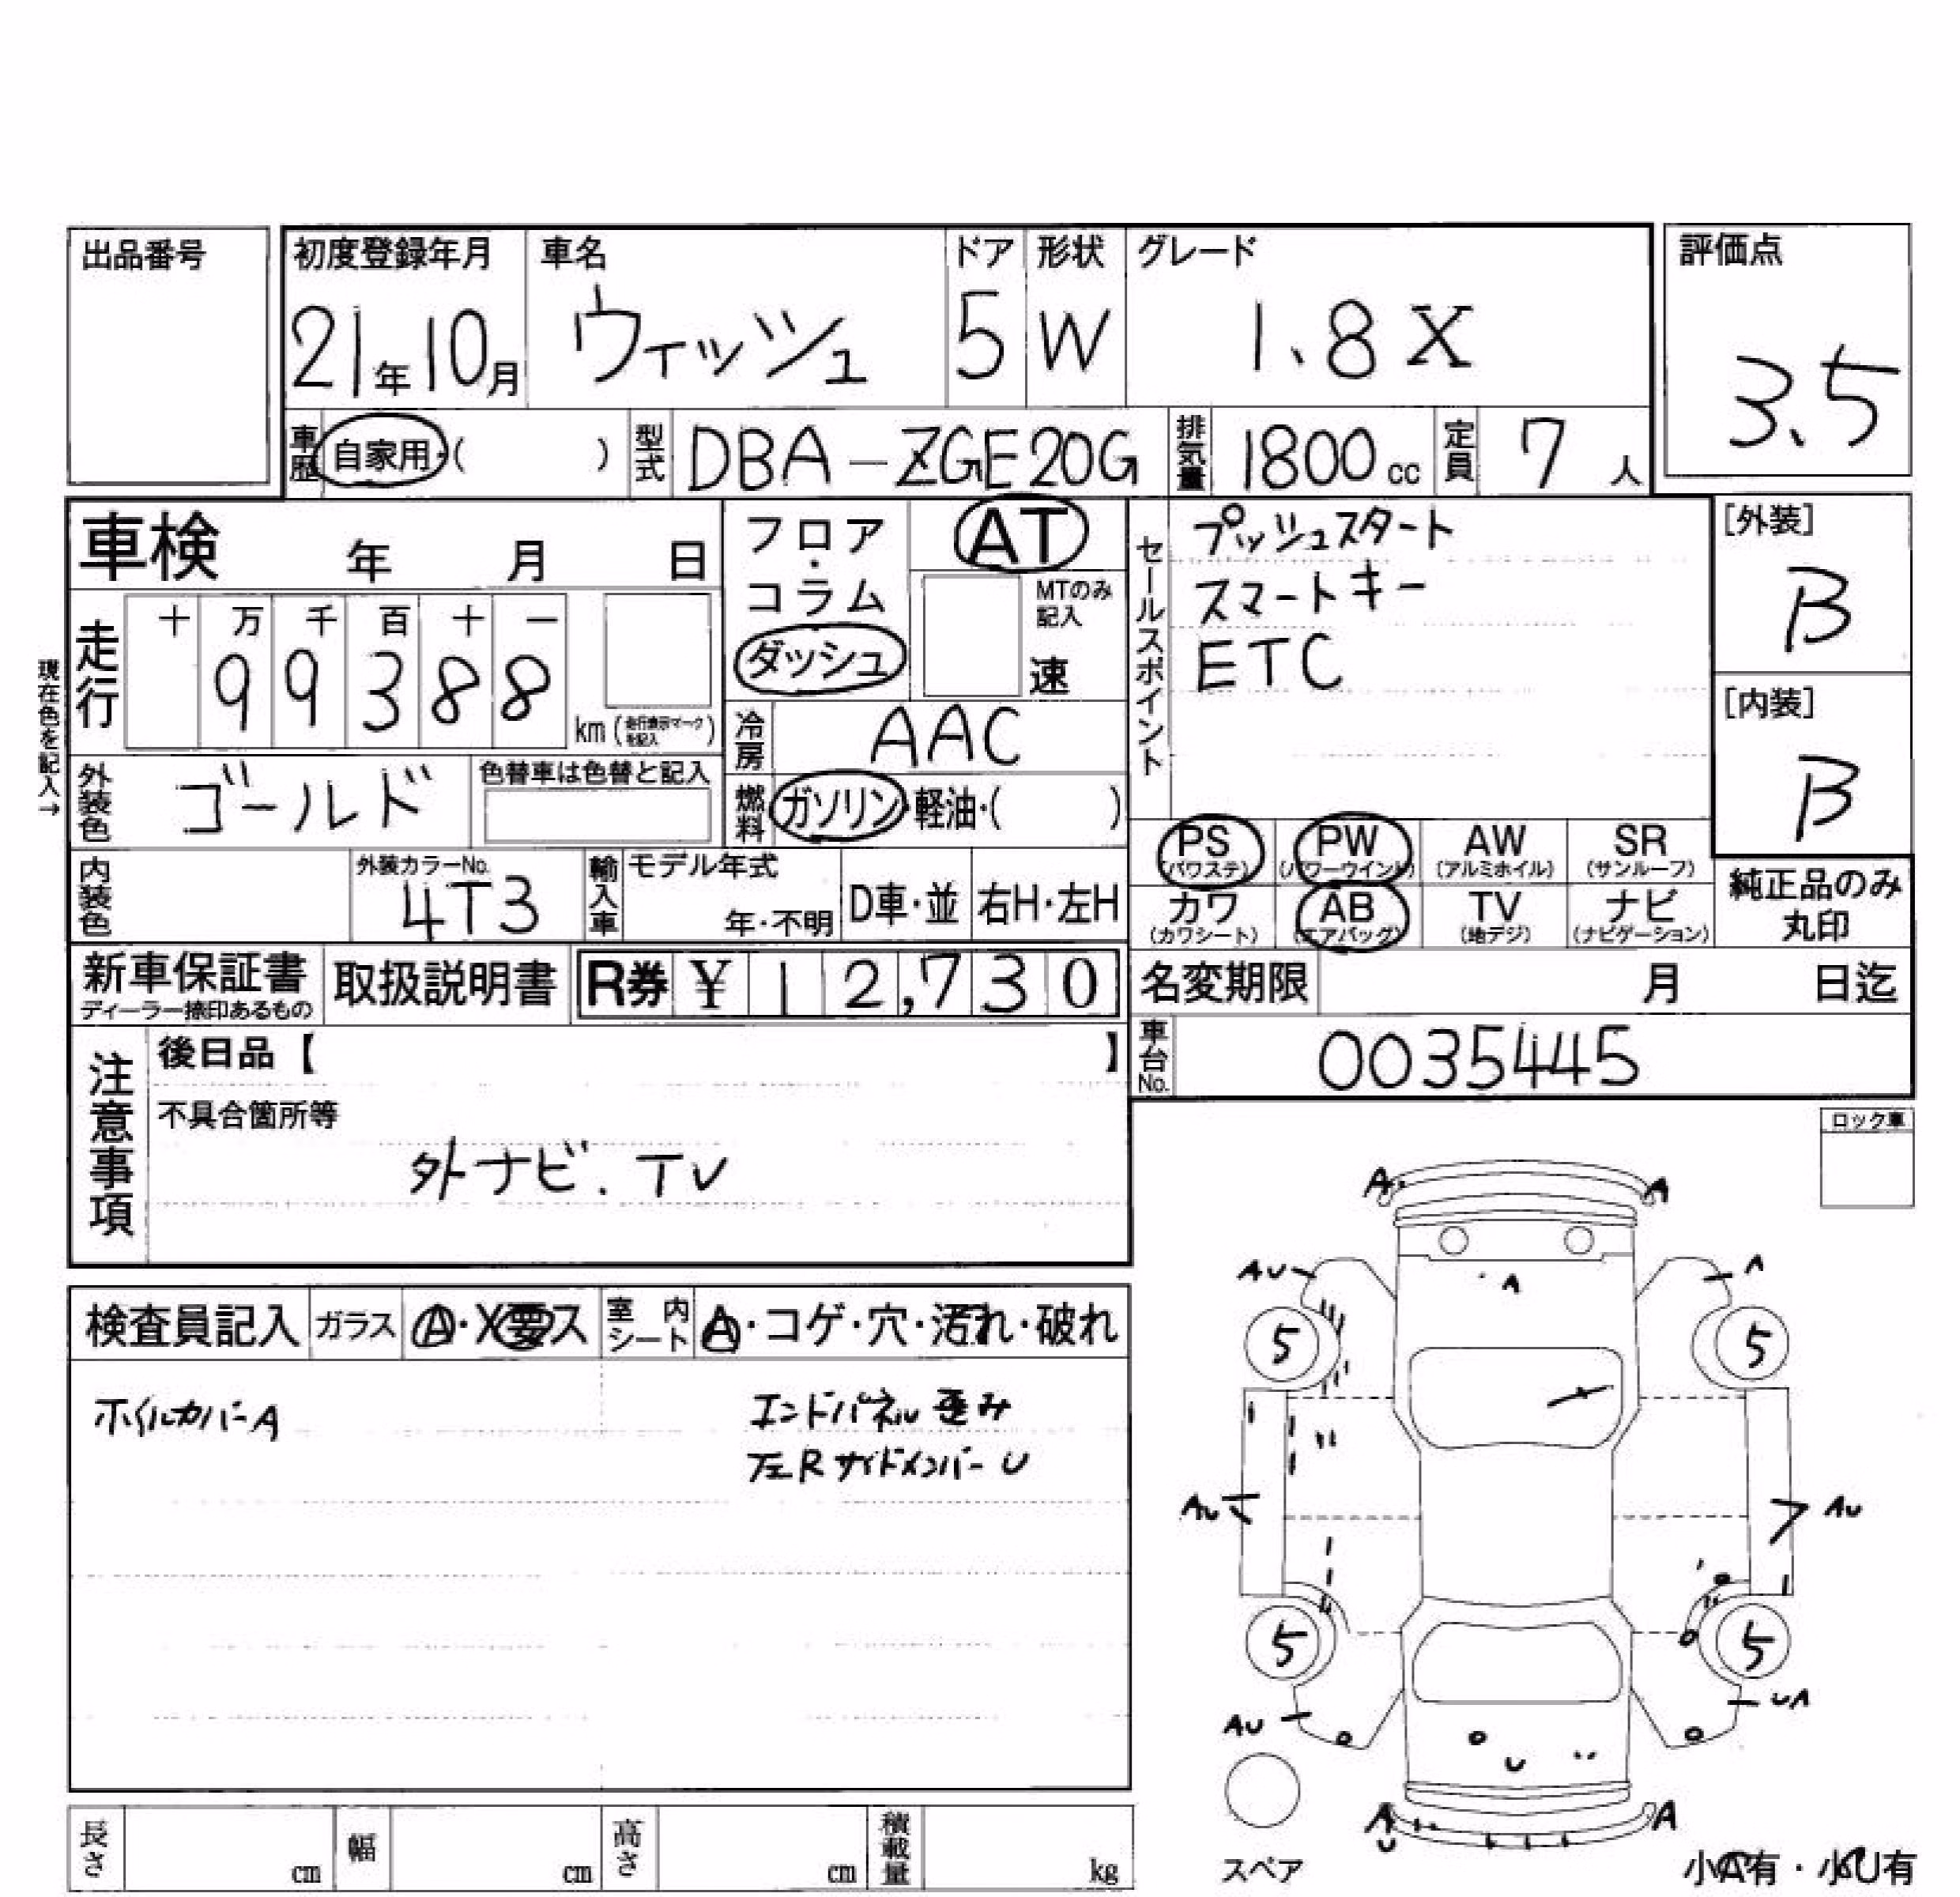 出品番号
初度登録年月 車名 ドア 形状 グレード 評価点
21年10月 ウィッシュ 5 W 1.8 X 3.5
車歴 自家用・( ) 型式 DBA-ZGE20G 排気量 1800cc 定員 7人
車検 年 月 日
フロア・コラム
ダッシュ
AT
MTのみ記入
速
セールスポイント
プッシュスタート
スマートキー
ETC
[外装]
B
[内装]
B
現在色を記入→
走行 十 万 千 百 十 一
99388
km(走行表示マークを記入)
冷房 AAC
外装色 ゴールド 色替車は色替と記入
燃料 ガソリン・軽油・( )
PS PW AW SR
(パワステ) (パワーウインド) (アルミホイル) (サンルーフ)
カワ AB TV ナビ
(カワシート) (エアバッグ) (地デジ) (ナビゲーション)
純正品のみ
丸印
内装色 外装カラーNo. 4T3
輸入車 モデル年式 年・不明 D車・並 右H・左H
新車保証書 取扱説明書 R券 ¥12,730
ディーラー捺印あるもの
名変期限 月 日迄
車台No. 0035445
注意事項
後日品【 】
不具合箇所等
外ナビ.TV
ロック車
検査員記入 ガラス A・X要ス 室内シート A・コゲ・穴・汚れ・破れ
ホイルカバーA エンドパネル歪み
左Rサイドメンバー U
A A
AU A A
5 5
AU AU
5 5
AU UA
U
A U A
スペア
小A有・小U有
長さ cm 幅 cm 高さ cm 積載量 kg